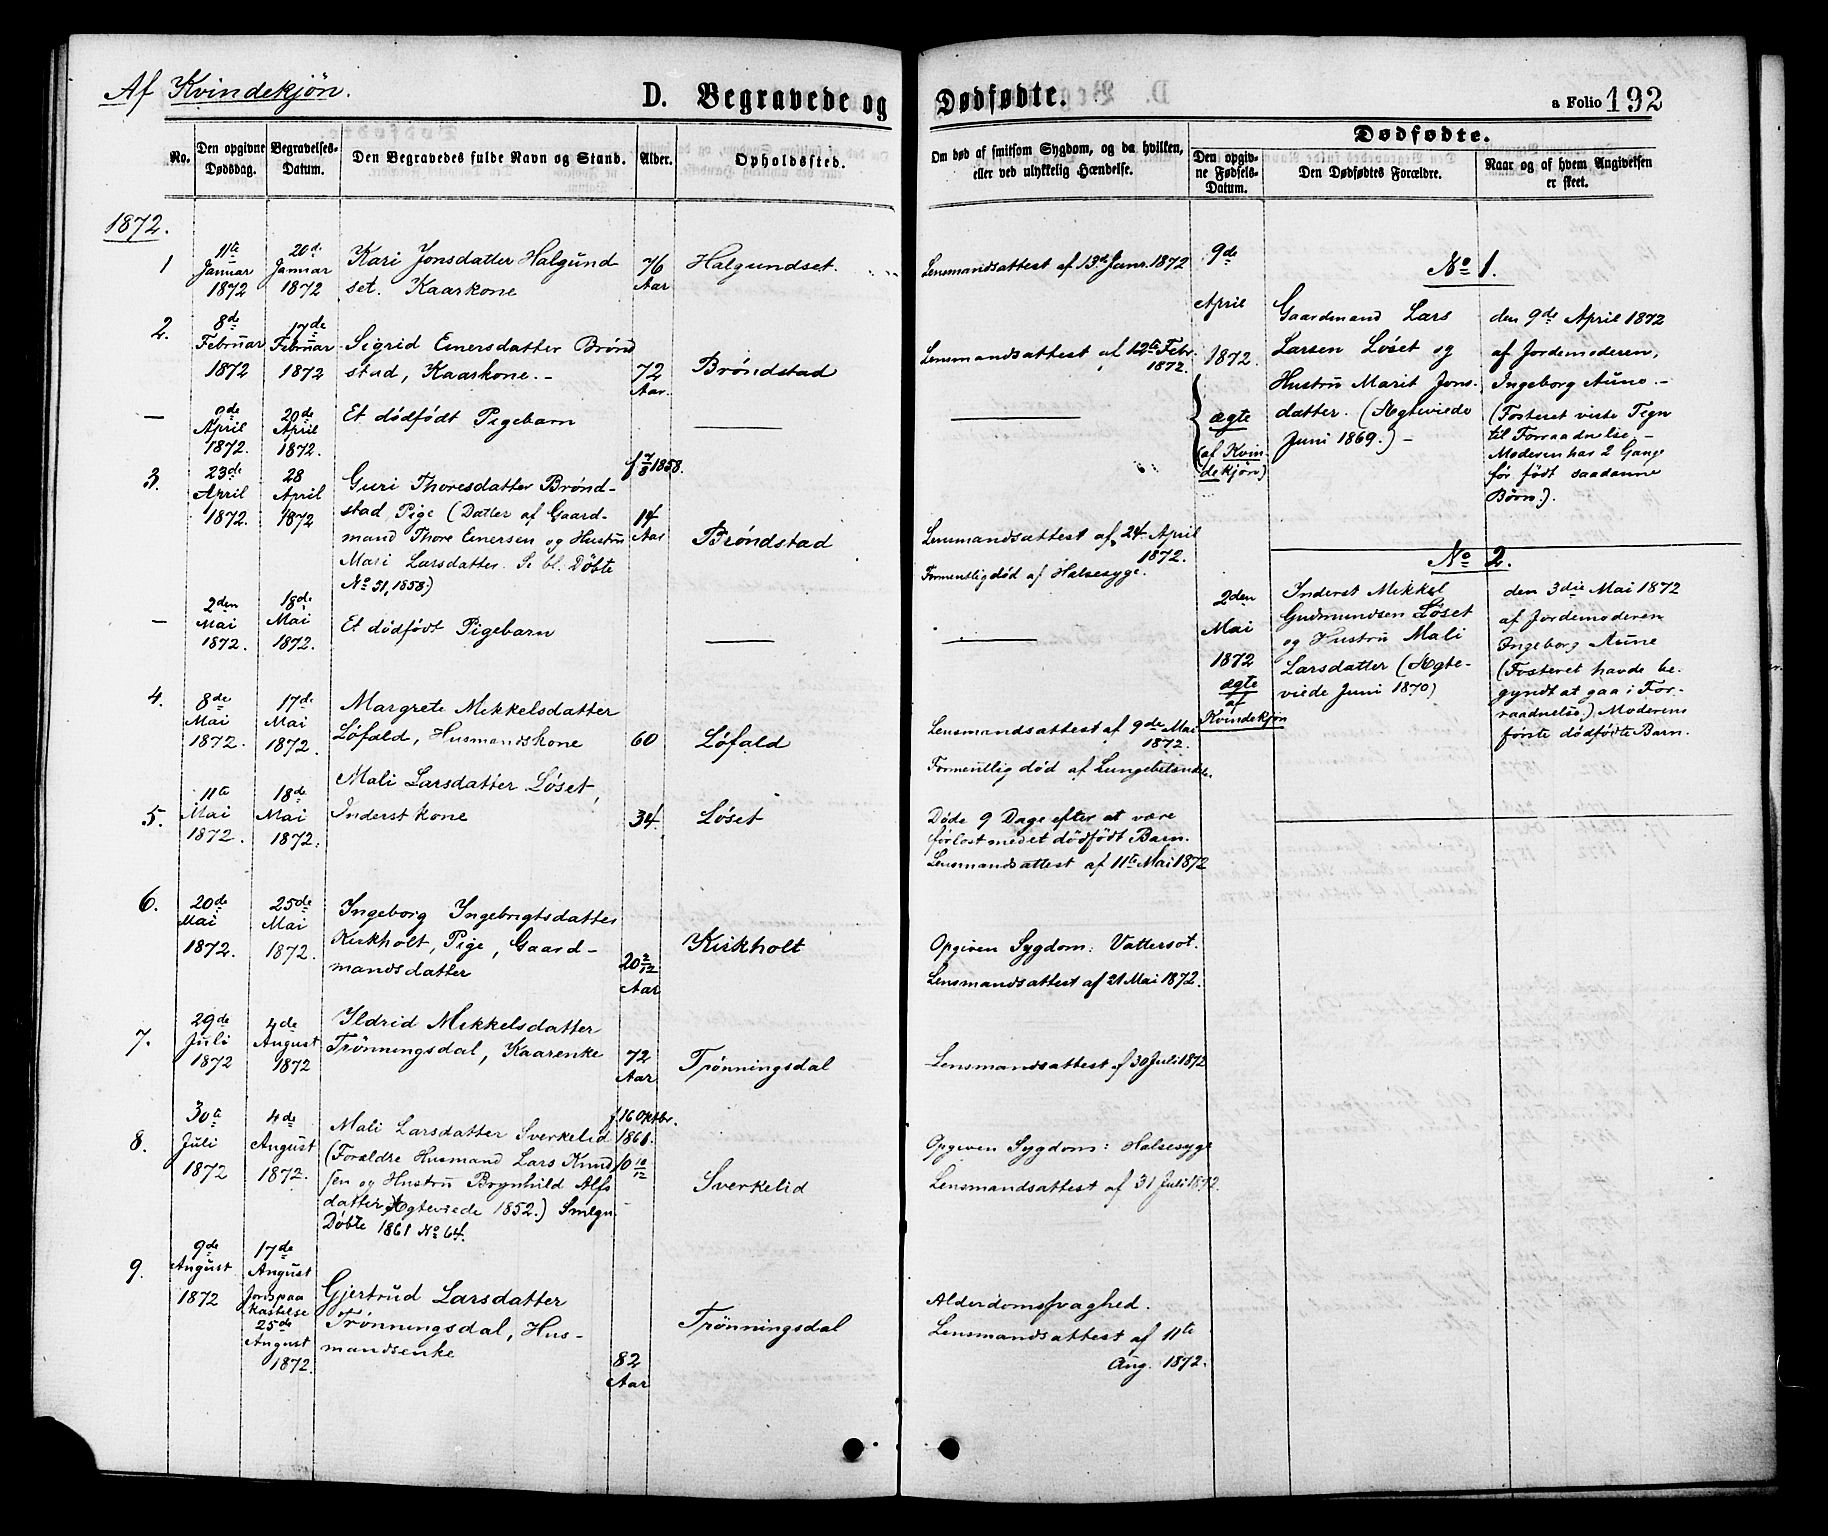 Af Kvindekjøn.
D. Begravede og Dødfødte.
a Folio 192
No.
Den opgivne Dødsdag.
Begravelses-Datum.
Den Begravedes fulde Navn og Stand.
Alder.
Opholdssted.
Om død af smitsom Sygdom, og da hvilken,
eller ved ulykkelig Hændelse.
Dødfødte.
Den opgivne Fødsels-Datum.
Den Dødfødtes Forældre.
Naar og af hvem Angivelsen
er skeet.
1872.
1
11te Januar 1872
20de Januar 1872
Kari Jonsdatter Halgund-
set. Kaarkone
76 Aar
Halgundset.
Lensmandsattest af 13de Janr. 1872
2.
8de Februar 1872
17de Februar 1872
Sigrid Einersdatter Brønd
stad, Kaarkone. -
72 Aar.
Brøndstad
Lensmandsattest af 12te Febr. 1872.
—
9de April 1872.
20de April 1872.
Et dödfödt Pigebarn
—
—
9de April 1872.
ægte (af Kvindekjøn)
No 1.
Gaardmand Lars
Larsen Löset og
Hustru Marit Jons-
datter. (Ægteviede
Juni 1869.) -
den 9de April 1872
af Jordemoderen,
Ingeborg Aune. -
(Fosteret viste Tegn
til Forraadnelse. -
Moderen har 2 Gange
før født saadanne
Børn.).
3.
23de April 1872.
28 April 1872
Guri Thoresdatter Brönd-
stad, Pige (Datter af Gaard-
mand Thore Einersen og Hustru
Mari Larsdatter. Se bl. Döbte
No 31, 1858.)
f 7/8 1858.
14 Aar
Brøndstad
Lensmandsattest af 24 April
1872.
Formentlig død af Halsesyge.
—
2den Mai 1872.
18de Mai 1872.
Et dödfödt Pigebarn
—
—
2den Mai 1872
ægte af Kvindekjøn
No 2.
Inderst Mikkel
Gudmundsen Löset
og Hustru Mali
Larsdatter (Ægte-
viede Juni 1870)
den 3die Mai 1872
af Jordemoderen
Ingeborg Aune
(Fosteret havde be-
gyndt at gaa i For-
raadnelse.) Moderens
förste dödfödte Barn.
4.
8de Mai 1872.
17de Mai 1872.
Margrete Mikkelsdatter
Löfald, Husmandskone
60
Löfald
Lensmandsattest af 9de Mai
1872.
Formentlig död af Lungebetændelse.
5.
11te Mai 1872.
18de Mai 1872.
Mali Larsdatter Löset,
Inderstkone
34.
Löset
Døde 9 Dage efter at være
forløst med et dödfödt Barn.
Lensmandsattest af 11te Mai 1872
6.
20de Mai 1872.
25de Mai 1872.
Ingeborg Ingebrigtsdatter
Kirkholt, Pige, Gaard-
mandsdatter
20 2/12 Aar
Kirkholt
Opgiven Sygdom: Vattersot.
Lensmandsattest af 21 Mai 1872.
7.
29de Juli 1872
4de August 1872
Ildrid Mikkelsdatter
Trönningsdal, Kaarenke
72 Aar.
Trønningsdal
Lensmandsattest af 30 Juli 1872
8.
30te Juli 1872
4de August 1872.
Mali Larsdatter Sverkelid
(Forældre Husmand Lars Knud
sen og Hustru Brynhild Alfs
datter, Ægteviede 1852.) Smlgn.
Döbte 1861 No 64.
f. 16 Oktbr. 1861.
10 10/12
Sverkelid
Opgiven Sygdom: Halsesyge
Lensmandsattest af 31 Juli 1872.
9.
9de August 1872
17de August
Jordspaakastelse
25de August 1872.
Gjertrud Larsdatter
Trönningsdal, Hus-
mandsenke
82 Aar
Trønningsdal
Alderdomssvaghed.
Lensmandsattest af 11te
Aug. 1872.